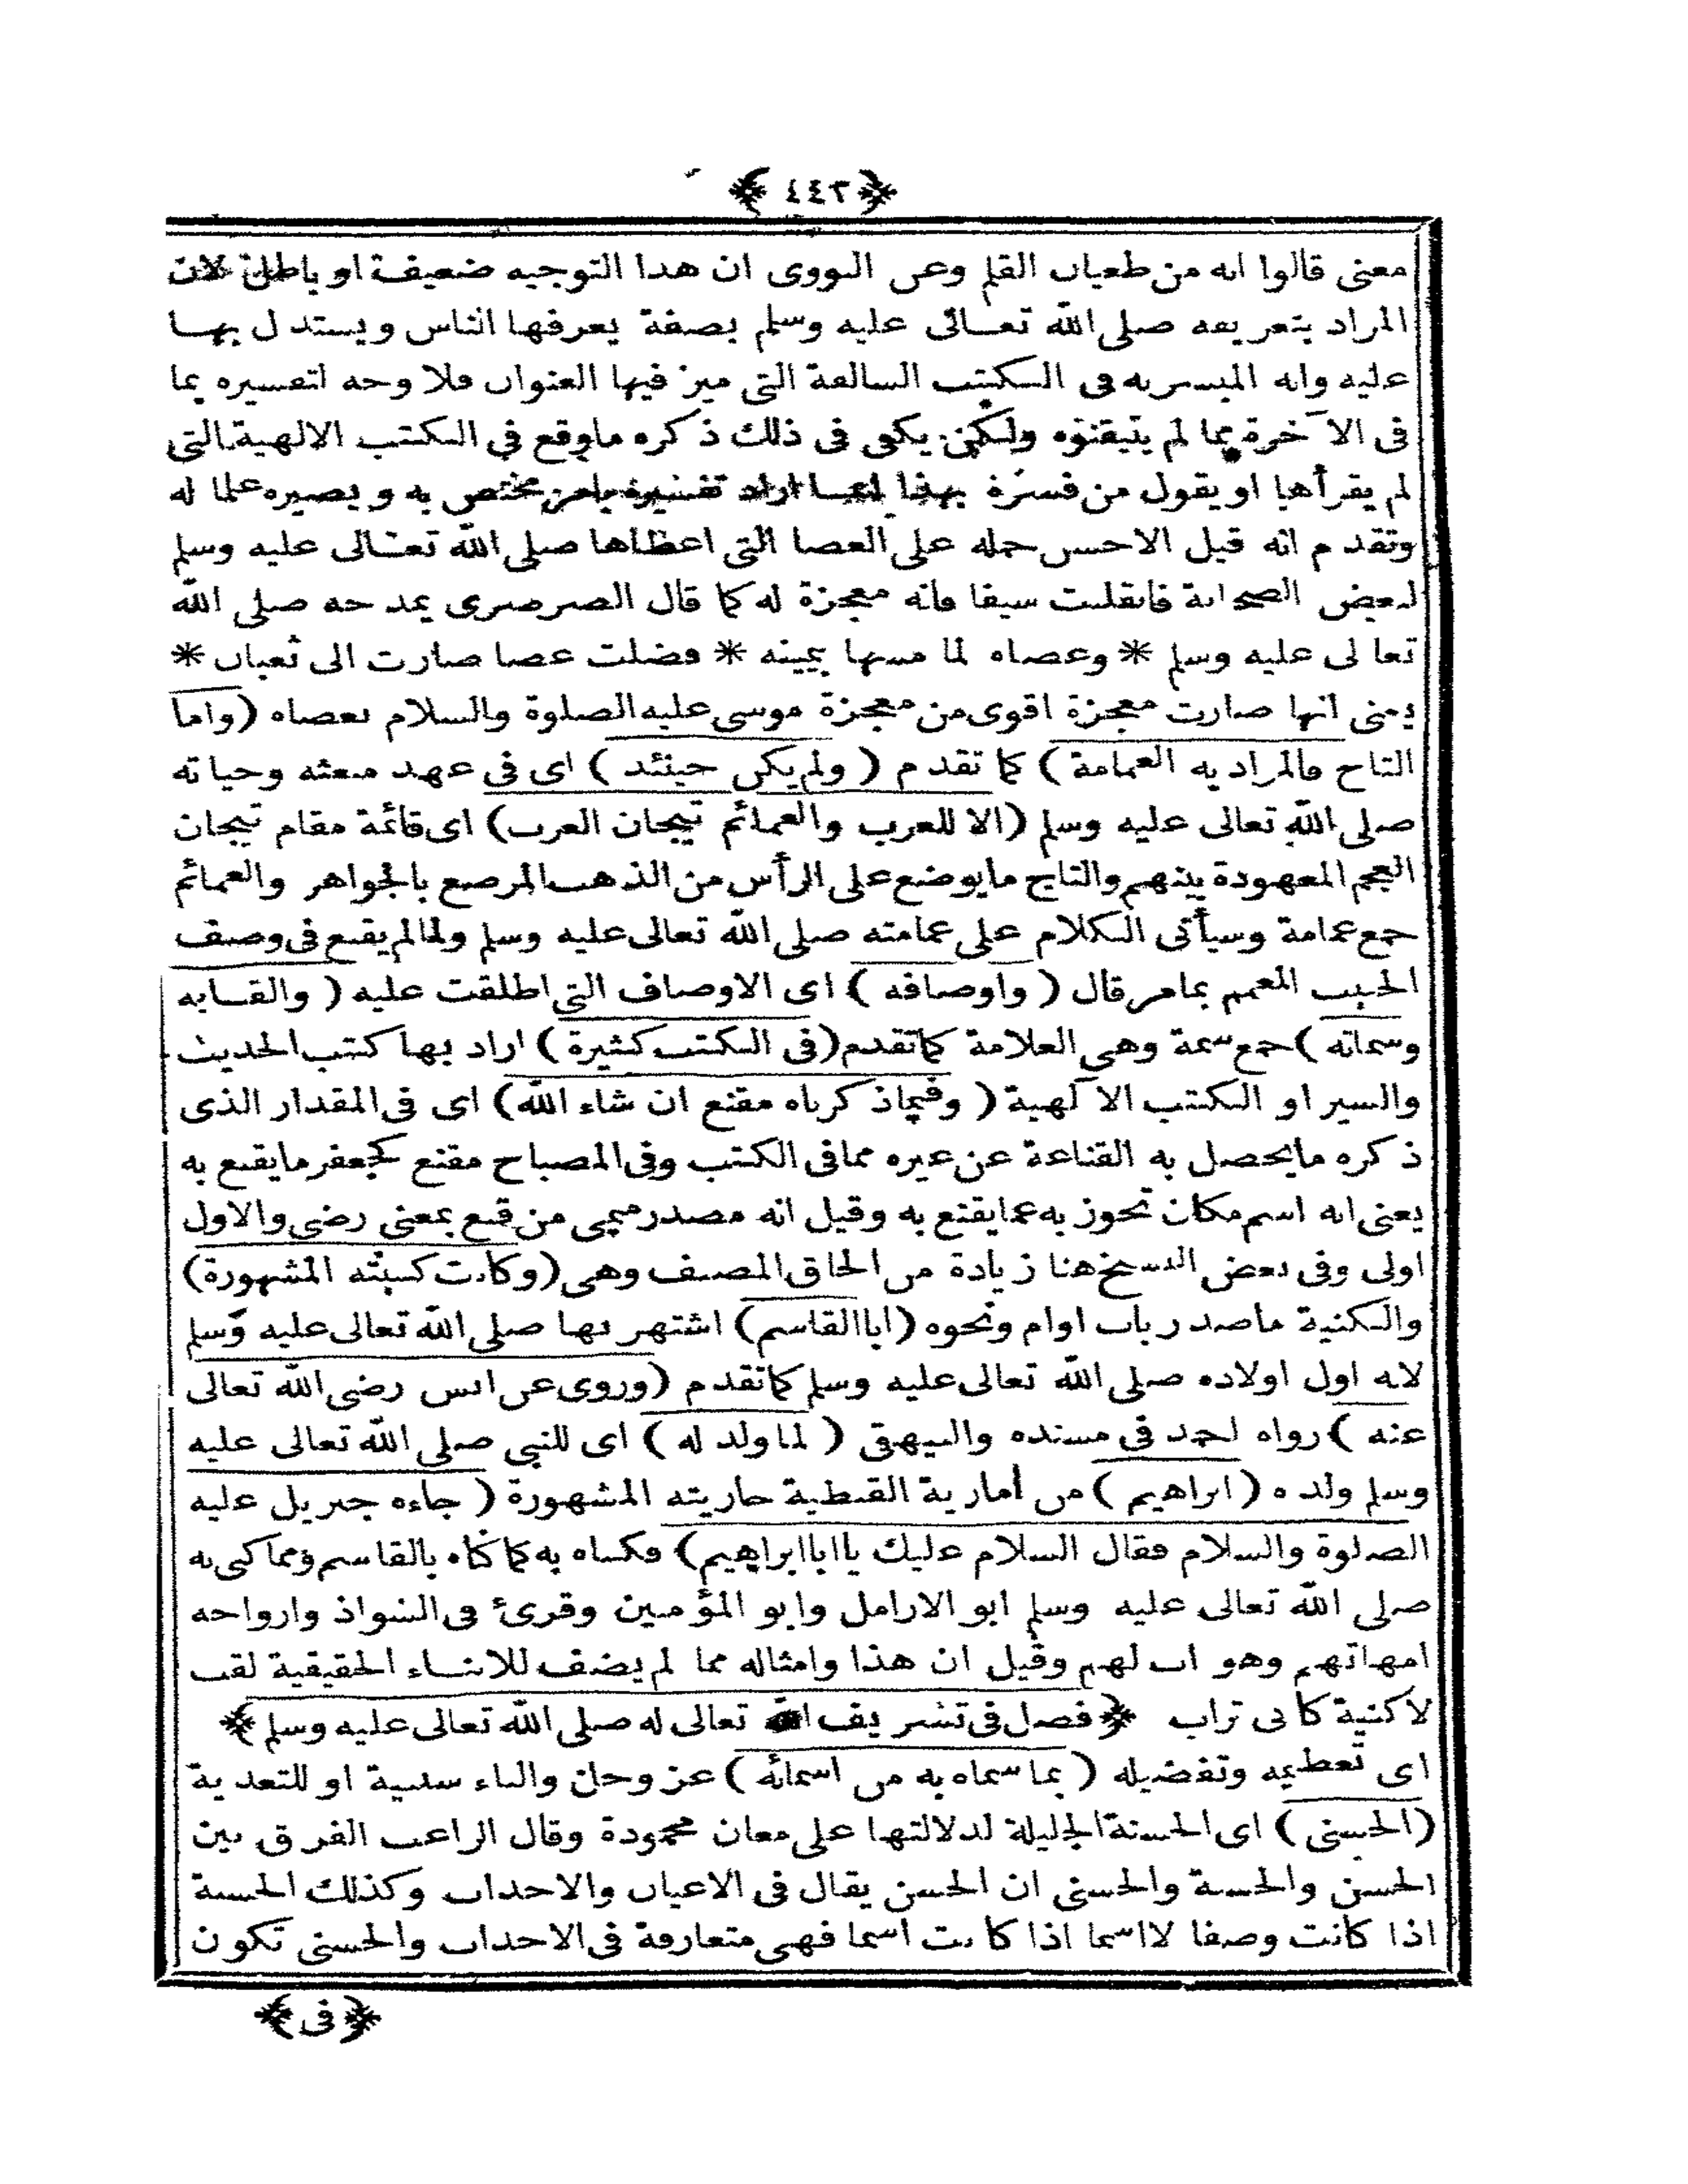 ﴿ ٤٤٢ ﴾
معنى قالوا انه من طغيان القلم وعن النووى ان هذا التوجيه ضعيف او باطل لان
المراد بتعريفه صلى الله تعالى عليه وسلم بصفة يعرفها الناس ويستدل بها
عليه وانه المبشر به فى الكتب السالفة التى ميز فيها العنوان فلا وجه لتفسيره بما
فى الآخرة مما لم يتيقنوه ولكن يكفى فى ذلك ذكره ماوقع فى الكتب الالهية التى
لم يقرأها او يقول من فسره بهذا انما اراد تفسيره بامر مختص به ويصيره علما له
وتقدم انه قيل الاحسن حمله على العصا التى اعطاها صلى الله تعالى عليه وسلم
لبعض الصحابة فانقلبت سيفا فانه معجزة له كما قال الصرصرى يمدحه صلى الله
تعالى عليه وسلم * وعصاه لما مسها بيمينه * فضلت عصا صارت الى ثعبان *
يعنى انها صارت معجزة اقوى من معجزة موسى عليه الصلوة والسلام بعصاه (واما
التاج فالمراد به العمامة) كما تقدم (ولم يكن حينئذ) اى فى عهد مبعثه وحياته
صلى الله تعالى عليه وسلم (الا للعرب والعمائم تيجان العرب) اى قائمة مقام تيجان
العجم المعهودة بينهم والتاج مايوضع على الرأس من الذهب المرصع بالجواهر والعمائم
جمع عمامة وسيأتى الكلام على عمامته صلى الله تعالى عليه وسلم ولما لم يقنع فى وصف
الحبيب المعمم بمامر قال (واوصافه) اى الاوصاف التى اطلقت عليه (والقابه
وسماته) جمع سمة وهى العلامة كما تقدم (فى الكتب كثيرة) اراد بها كتب الحديث
والسير او الكتب الآلهية (وفيما ذكرناه مقنع ان شاء الله) اى فى المقدار الذى
ذكره مايحصل به القناعة عن غيره مما فى الكتب وفى المصباح مقنع كجعفر مايقنع به
يعنى انه اسم مكان تجوز به عما يقنع به وقيل انه مصدر ميمى من قنع بمعنى رضى والاول
اولى وفى بعض النسخ هنا زيادة من الحاق المصنف وهى (وكانت كنيته المشهورة)
والكنية ماصدر باب اوام ونحوه (اباالقاسم) اشتهر بها صلى الله تعالى عليه وسلم
لانه اول اولاده صلى الله تعالى عليه وسلم كما تقدم (وروى عن انس رضى الله تعالى
عنه) رواه احمد فى مسنده والبيهقى (لما ولد له) اى للنبى صلى الله تعالى عليه
وسلم ولده (ابراهيم) من أمارية القبطية جاريته المشهورة (جاءه جبريل عليه
الصلوة والسلام فقال السلام عليك يااباابراهيم) فكناه به كما كناه بالقاسم ومما كنى به
صلى الله تعالى عليه وسلم ابو الارامل وابو المؤمنين وقرئ فى الشواذ وازواجه
امهاتهم وهو اب لهم وقيل ان هذا وامثاله مما لم يضف للابناء الحقيقية لقب
لا كنية كابى تراب ﴿ فصل فى تشريف الله تعالى له صلى الله تعالى عليه وسلم ﴾
اى تعظيمه وتفضيله (بما سماه به من اسمائه) عز وجل والباء سببية او للتعدية
(الحسنى) اى الحسنة الجليلة لدلالتها على معان محمودة وقال الراغب الفرق بين
الحسن والحسنة والحسنى ان الحسن يقال فى الاعيان والاحداث وكذلك الحسنة
اذا كانت وصفا لا اسما اذا كانت اسما فهى متعارفة فى الاحداث والحسنى تكون
﴿ فى ﴾